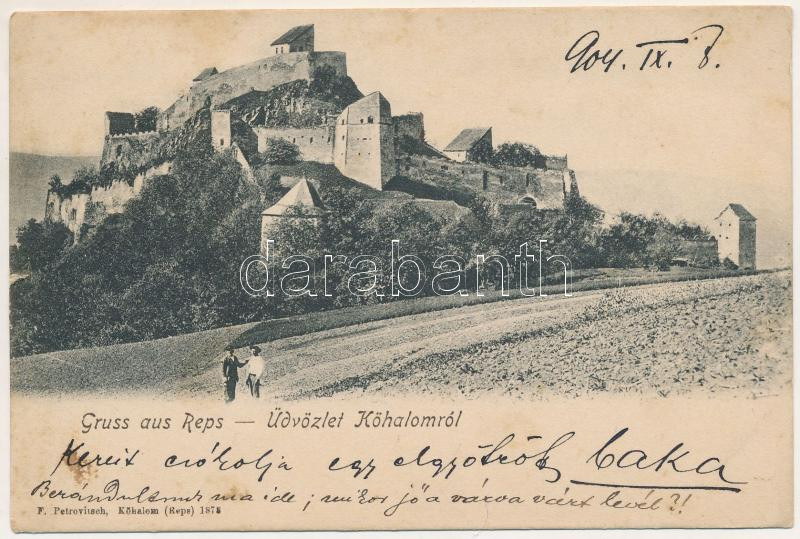 904. IX. 8.
darabanth
Gruss aus Reps — Üdvözlet Kőhalomról
csókolja egy elgyötrött baka
Berándultunk ma ide; mikor jő a várva várt levél?!
F. Petrovitsch, Kőhalom (Reps) 1878